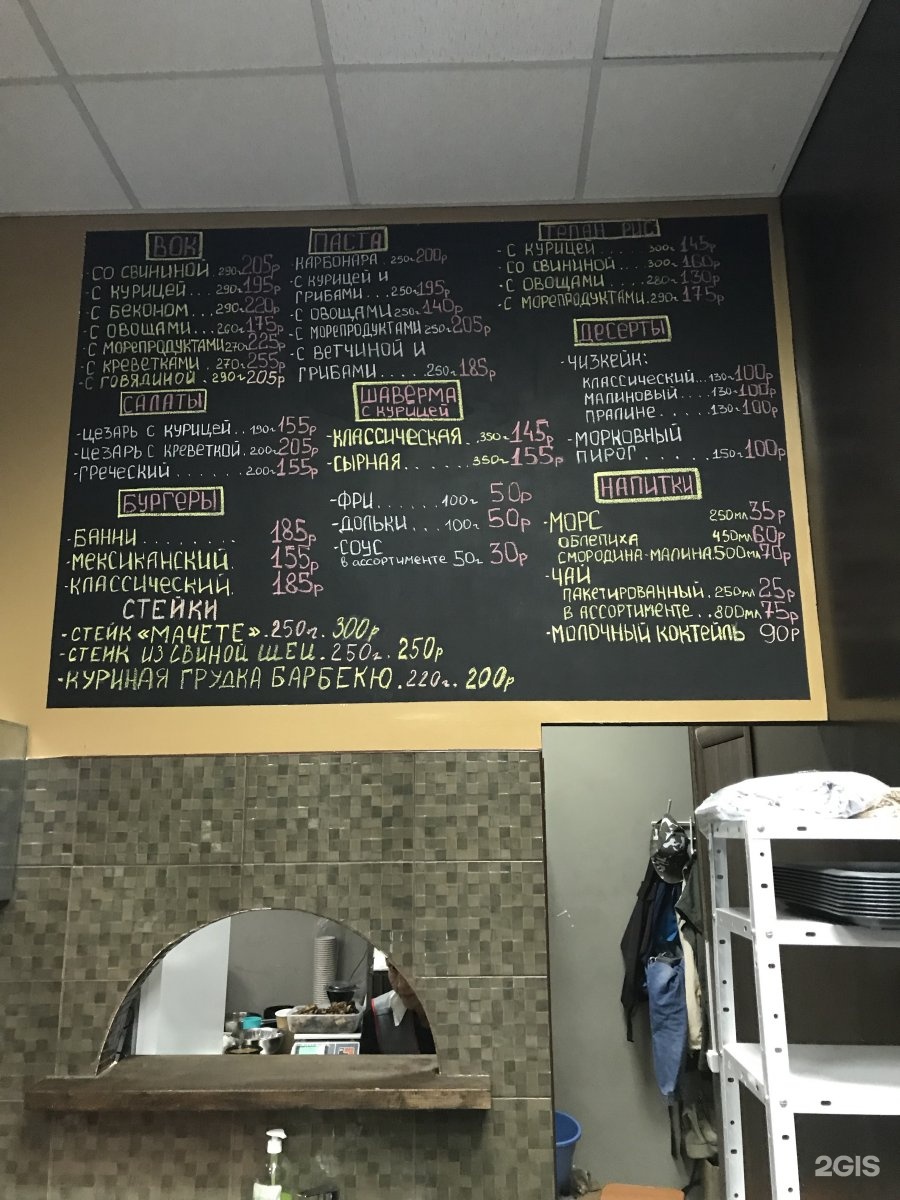 ВОК
-СО СВИНИНОЙ. 290г 205р
-С КУРИЦЕЙ... 290г 195р
-С БЕКОНОМ .. 290г 220р
-С ОВОЩАМИ... 260г 175р
-С МОРЕПРОДУКТАМИ 270г 225р
-С КРЕВЕТКАМИ . 270г 255р
-С ГОВЯДИНОЙ . 290г 205р
САЛАТЫ
-ЦЕЗАРЬ С КУРИЦЕЙ.. 190г 155р
-ЦЕЗАРЬ С КРЕВЕТКОЙ. 200г 205р
-ГРЕЧЕСКИЙ ....... 200г 155р
БУРГЕРЫ
-БАННИ ......... 185р
-МЕКСИКАНСКИЙ. 155р
-КЛАССИЧЕСКИЙ. 185р
СТЕЙКИ
-СТЕЙК «МАЧЕТЕ» .250г. 300р
-СТЕЙК ИЗ СВИНОЙ ШЕИ .250г. 250р
-КУРИНАЯ ГРУДКА БАРБЕКЮ .220г. 200р
ПАСТА
КАРБОНАРА . 250г 200р
-С КУРИЦЕЙ И
ГРИБАМИ.... 250г 195р
-С ОВОЩАМИ 250г 140р
-С МОРЕПРОДУКТАМИ 250г 205р
-С ВЕТЧИНОЙ И
ГРИБАМИ ..... 250г 185р
ШАВЕРМА
С КУРИЦЕЙ
-КЛАССИЧЕСКАЯ.. 350г 145р
-СЫРНАЯ ....... 350г 155р
-ФРИ..... 100г 50р
-ДОЛЬКИ.... 100г 50р
-СОУС
В АССОРТИМЕНТЕ 50г 30р
ТЯПАН РИС
-С КУРИЦЕЙ..... 300г 145р
-СО СВИНИНОЙ... 300г 160р
-С ОВОЩАМИ .... 280г 130р
-С МОРЕПРОДУКТАМИ. 290г 175р
ДЕСЕРТЫ
-ЧИЗКЕЙК:
КЛАССИЧЕСКИЙ... 130г 100р
МАЛИНОВЫЙ .... 130г 100р
ПРАЛИНЕ ...... 130г 100р
-МОРКОВНЫЙ
ПИРОГ ....... 150г 100р
НАПИТКИ
-МОРС 250мл 35р
ОБЛЕПИХА 450мл 60р
СМОРОДИНА-МАЛИНА 500мл 70р
-ЧАЙ
ПАКЕТИРОВАННЫЙ. 250мл 25р
В АССОРТИМЕНТЕ .. 800мл 75р
-МОЛОЧНЫЙ КОКТЕЙЛЬ 90р
2GIS